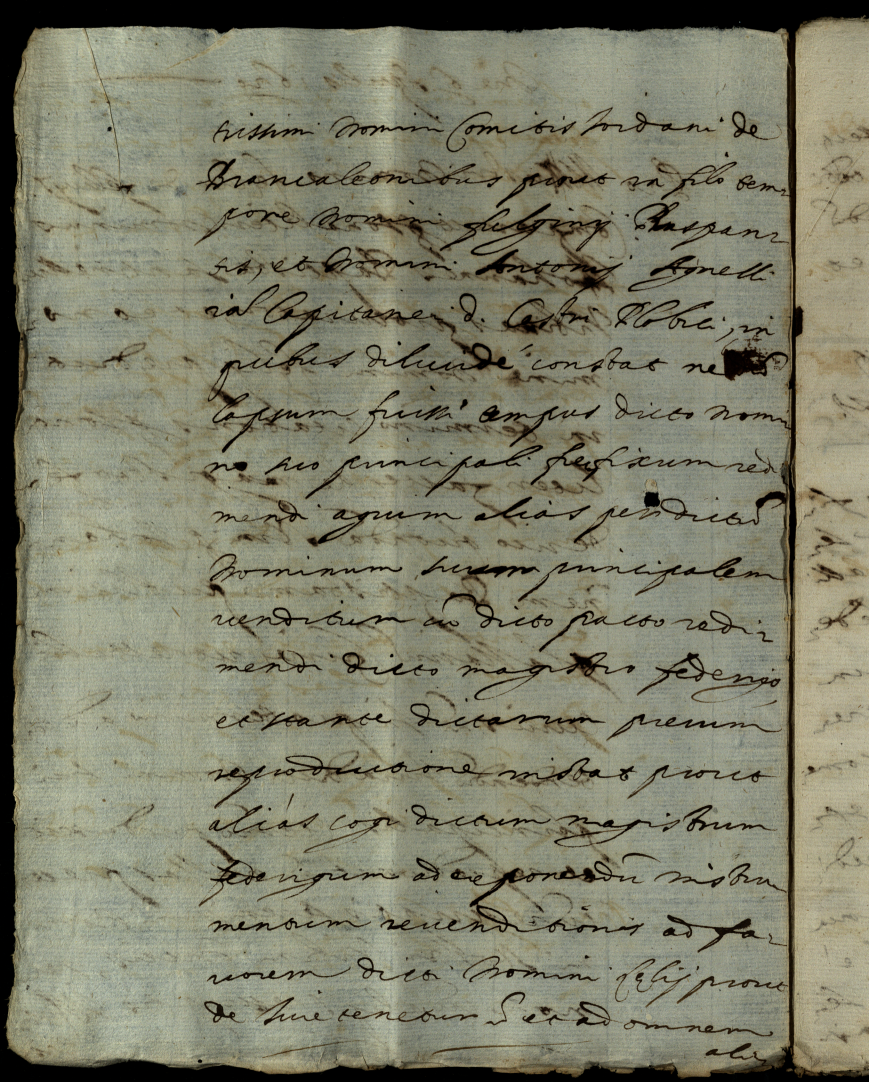 trissimi Domini Comitis Jordani de
Brancaleonibus prout in filo tem-
pore Domini fulginij Raspan-
tis, et Domini Antonij Agnelli
Capitanei d. Castri Plobici, in
quibus dilucide constat
lapsum fuisse tempus dicto Domi
no suo principali prefixum redi
mendi agrum aliàs per dictũ
Dominum suum principalem
venditum cũ dicto pacto redi-
mendi dicto magistro federigo
et stante dictarum precium
reproductione instat prout
aliàs cogi dictum magistrum
federigum ad exponendũ instru
mentum revenditionis ad fa-
vorem dicti Domini prout
de Iure tenetur et ad omnem